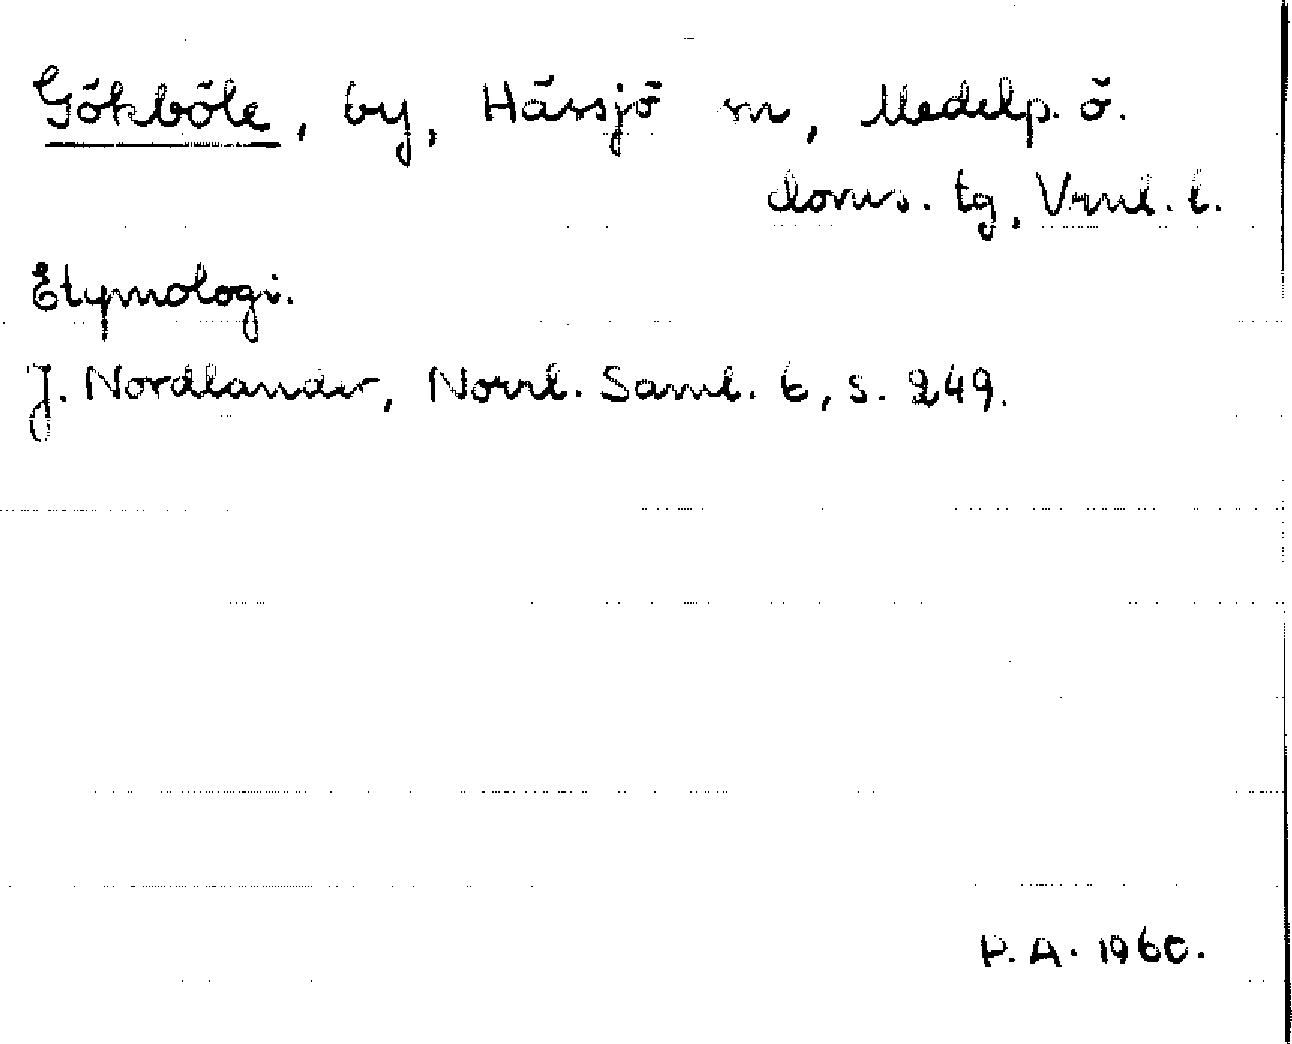 Gökböle, by, Hässjö sn, Medelp. ö.
doms. tg, Vnml. l.
Etymologi.
J. Nordlander, Norrl. Saml. 6, s. 249.
P.A. 1960.